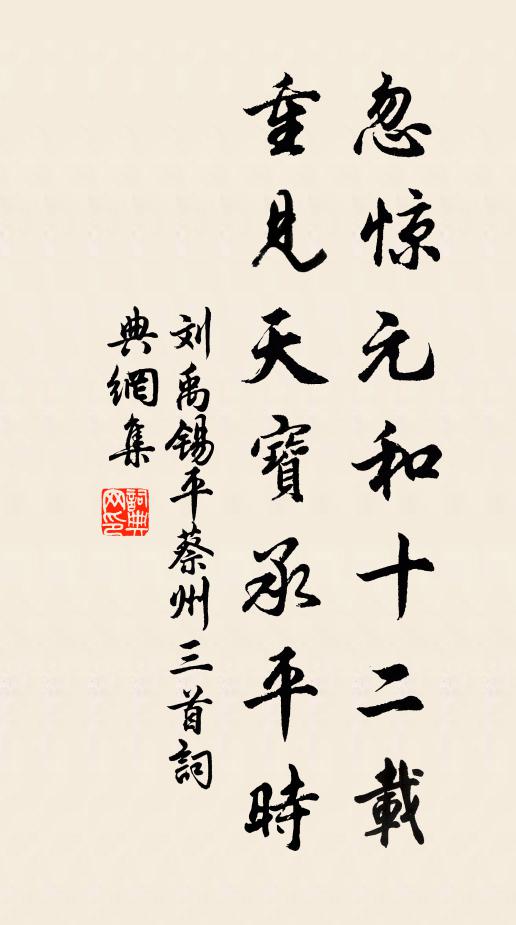 忽惊元和十二載
重見天寶承平時
刘禹锡平蔡州三首詞
典網集
詞典网印